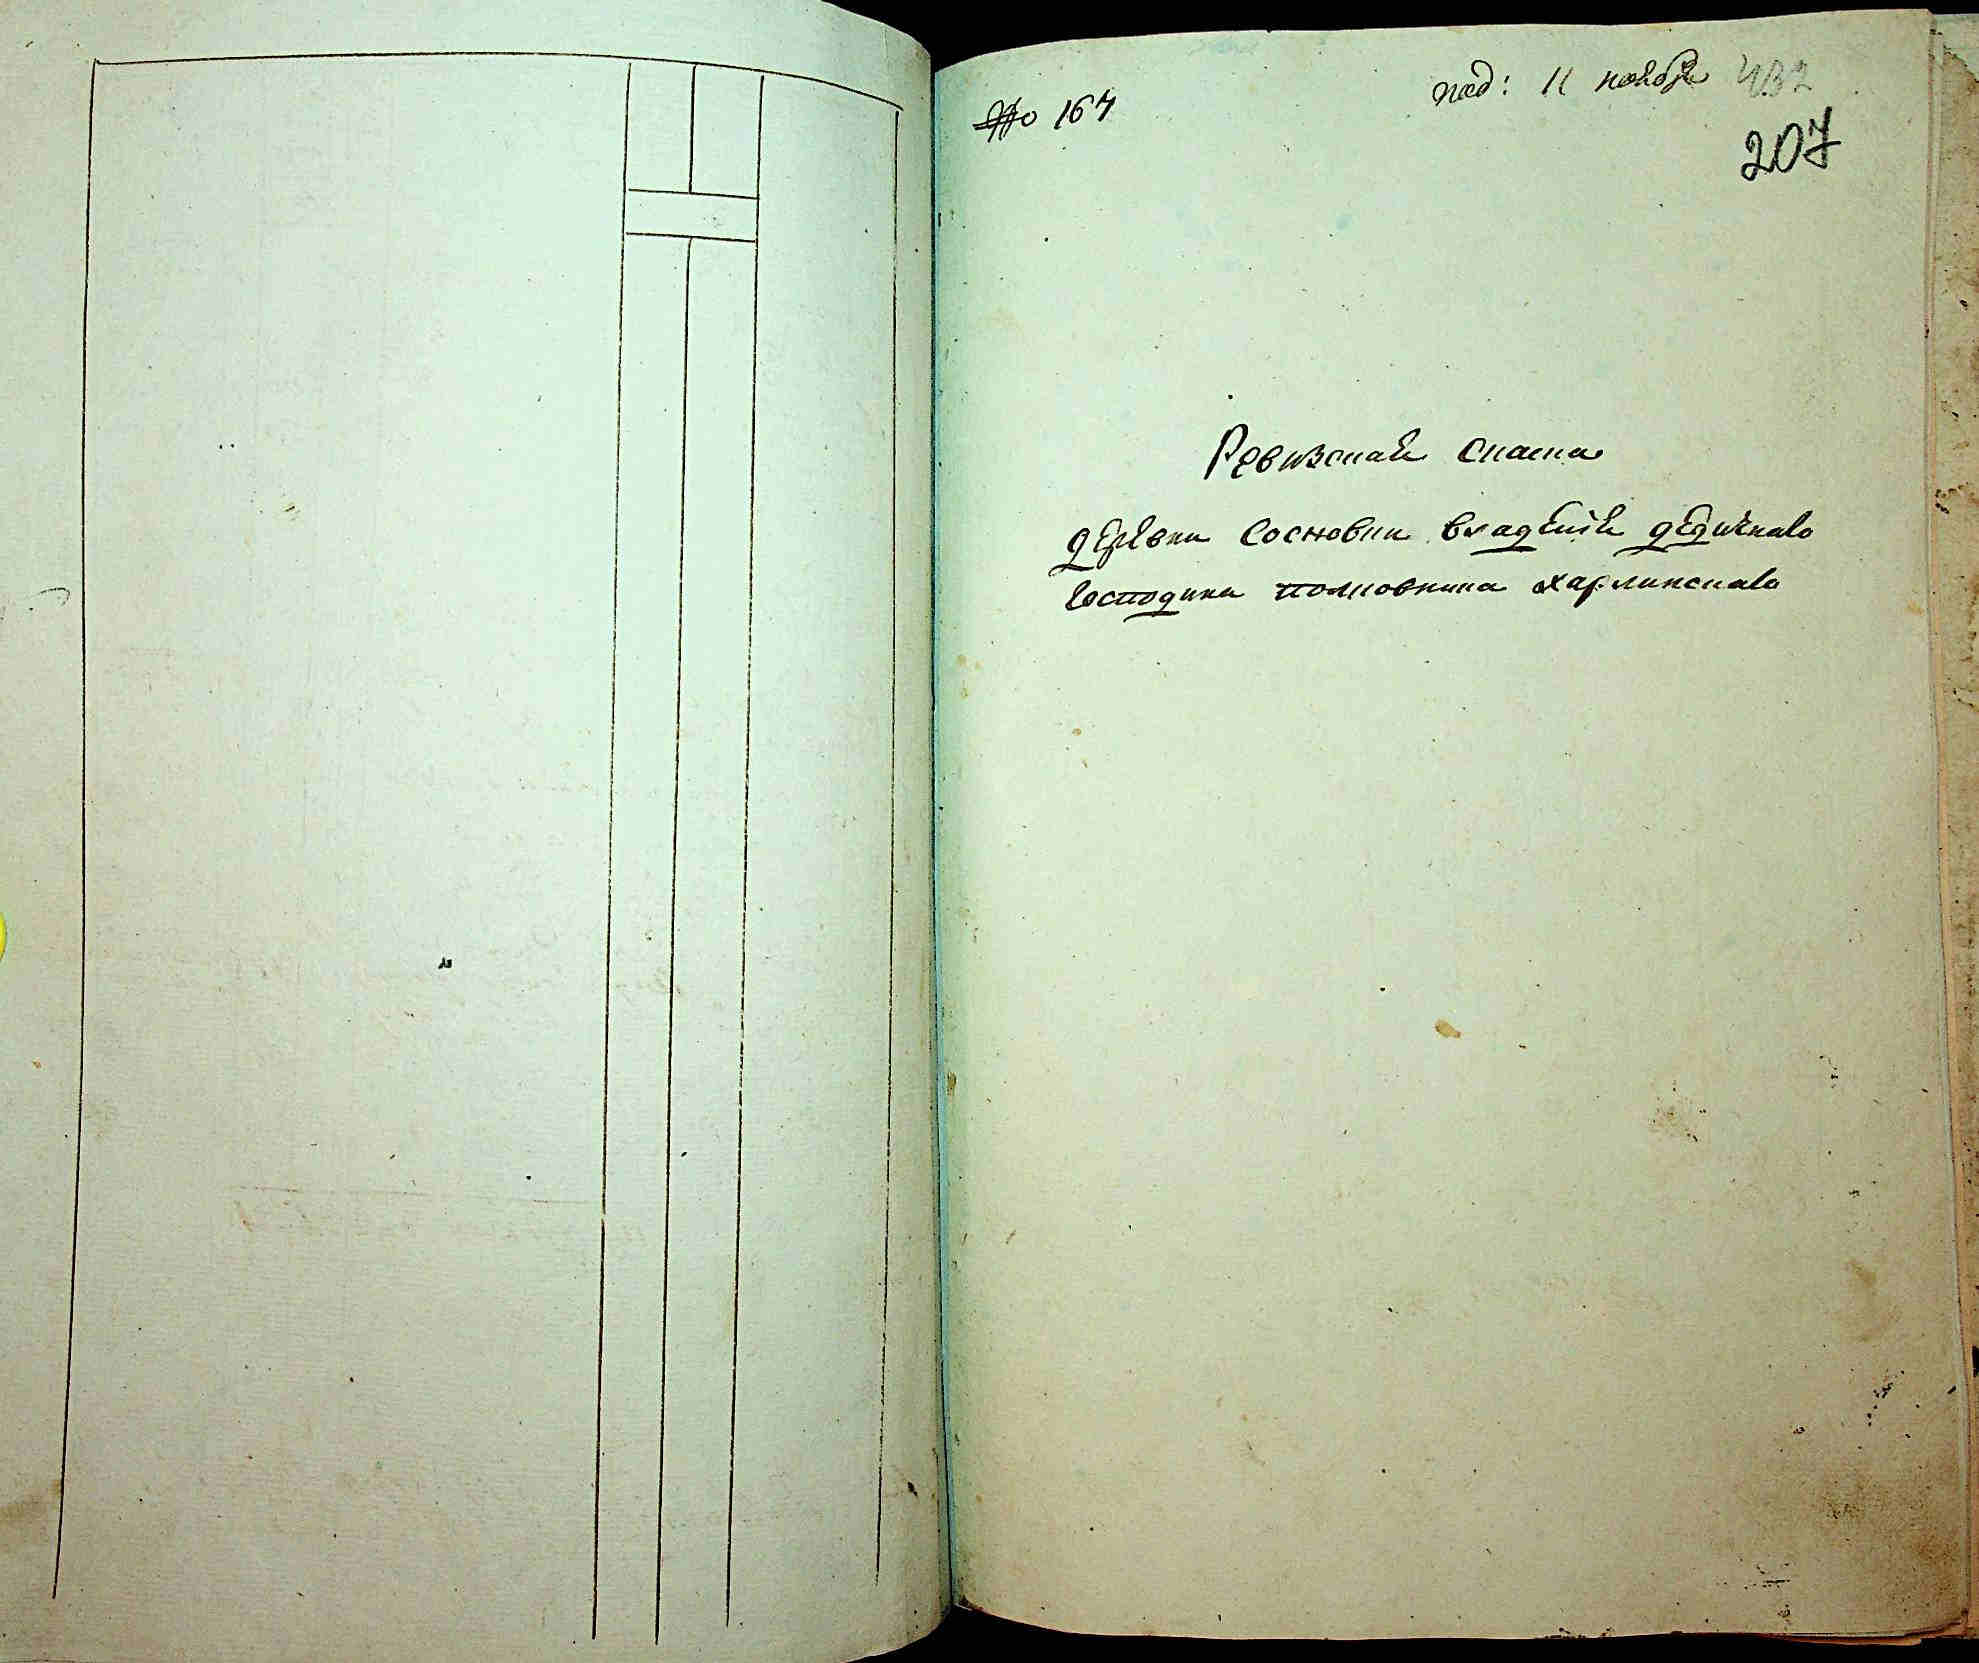 № 167
под: 11 ноября 432
207
Ревизская скаска
деревни Сосновки владения дедичнаго
господина полковника Харлинскаго